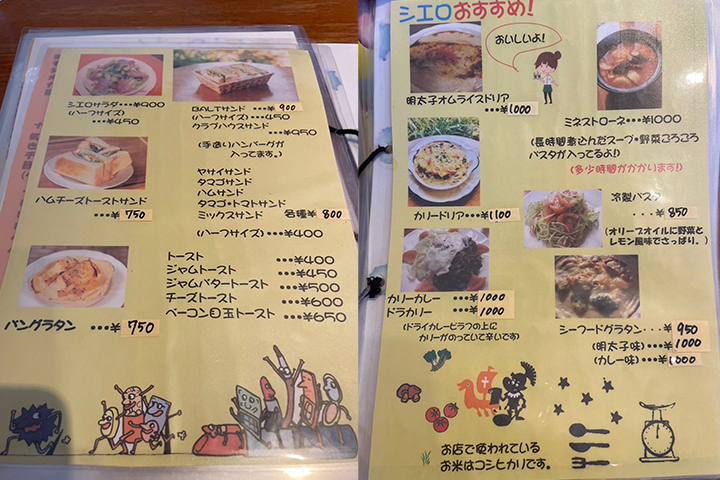 シエロサラダ・・・¥900
(ハーフサイズ)
・・・¥450
BALTサンド ・・・¥ 900
(ハーフサイズ)・・・¥450
クラブハウスサンド
・・・¥950
(手造りハンバーグが
入ってます。)
ハムチーズトーストサンド
・・・¥ 750
ヤサイサンド
タマゴサンド
ハムサンド
タマゴ・トマトサンド
ミックスサンド 各種¥ 800
(ハーフサイズ)・・・¥400
パングラタン ・・・¥ 750
トースト ・・・¥400
ジャムトースト ・・・¥450
ジャムバタートースト ・・・¥500
チーズトースト ・・・¥600
ベーコン目玉トースト ・・・¥650
シエロおすすめ!
おいしいよ!
明太子オムライスドリア
・・・¥1000
ミネストローネ・・・¥1000
(長時間煮込んだスープ・野菜ころころ
パスタが入ってるよ!)
(多少時間がかかります!)
カリードリア・・・¥1,100
冷製パスタ
・・・¥ 850
(オリーブオイルに野菜と
レモン風味でさっぱり。)
カリーカレー ・・・¥ 1000
ドラカリー ・・・¥ 1000
(ドライカレーピラフの上に
カリーがのっていて辛いです)
シーフードグラタン・・・¥ 950
(明太子味)・・・¥1000
(カレー味)・・・¥1,000
お店で使われている
お米はコシヒカリです。